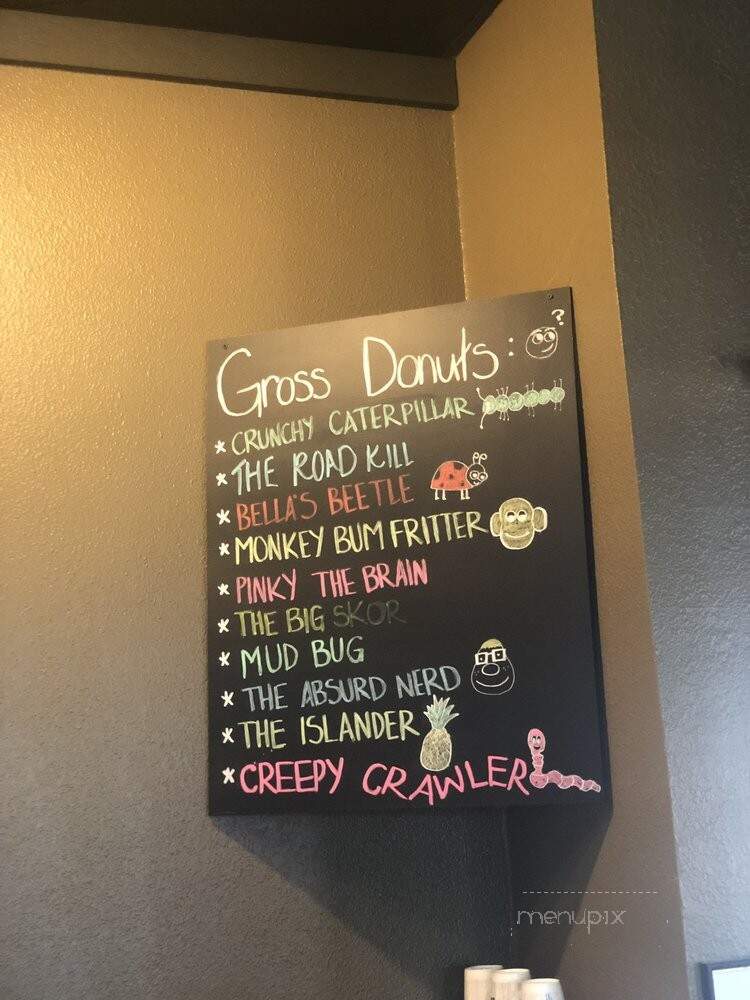 Gross Donuts: ?
* CRUNCHY CATERPILLAR
* THE ROAD KILL
* BELLA'S BEETLE
* MONKEY BUM FRITTER
* PINKY THE BRAIN
* THE BIG SKOR
* MUD BUG
* THE ABSURD NERD
* THE ISLANDER
* CREEPY CRAWLER
menupix